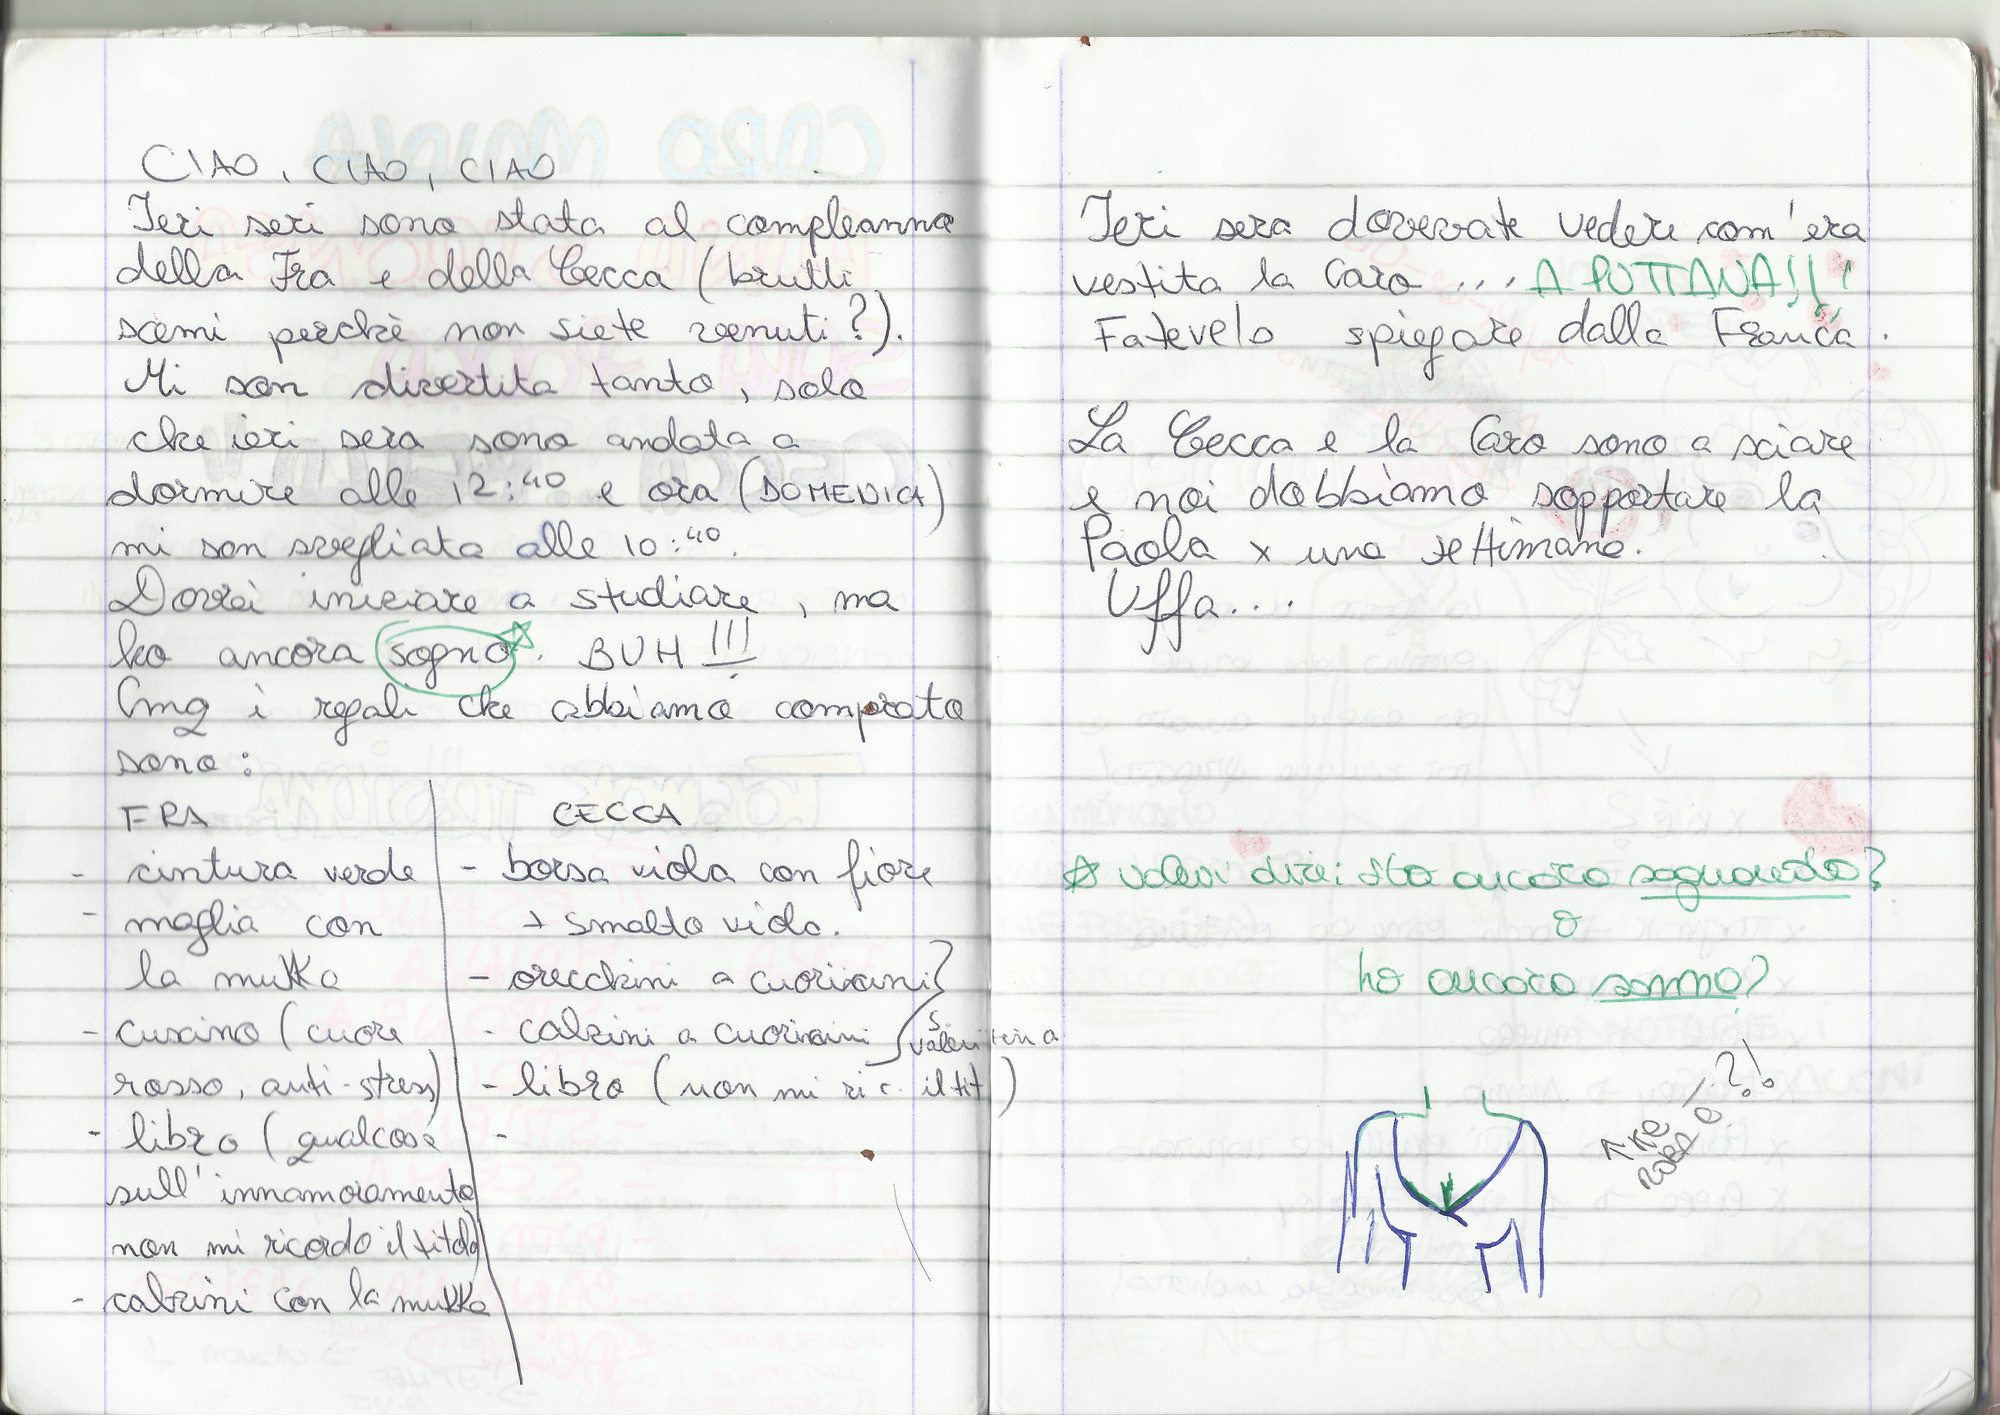 CIAO, CIAO, CIAO
Ieri seri sono stata al compleanno
della Fra e della Cecca (brutti
scemi perchè non siete venuti?).
Mi son divertita tanto, solo
che ieri sera sono andata a
dormire alle 12:40 e ora (DOMENICA)
mi son svegliata alle 10:40.
Dovrei iniziare a studiare, ma
ho ancora sogno☆. BUH !!!
Cmq i regali che abbiamo comprato
sono:
FRA
- cintura verde
- maglia con
la mukka
- cuscino (cuore
rosso, anti-stress)
- libro (qualcosa
sull'innamoramento
non mi ricordo il titolo)
- calzini con la mukka
CECCA
- borsa viola con fiore
+ smalto viola.
- orecchini a cuoricini
- calzini a cuoricini
S. Valentina
- libro (non mi ric. il tit)
-
Ieri sera dovevate vedere com'era
vestita la Caro ... A PUTTANA!!!
Fatevelo spiegare dalla Franca.
La Cecca e la Caro sono a sciare
e noi dobbiamo sopportare la
Paola x una settimana.
Uffa....
☆ volevi dire: sto ancora sognando?
o
ho ancora sonno?
KE
ROBA È!?!